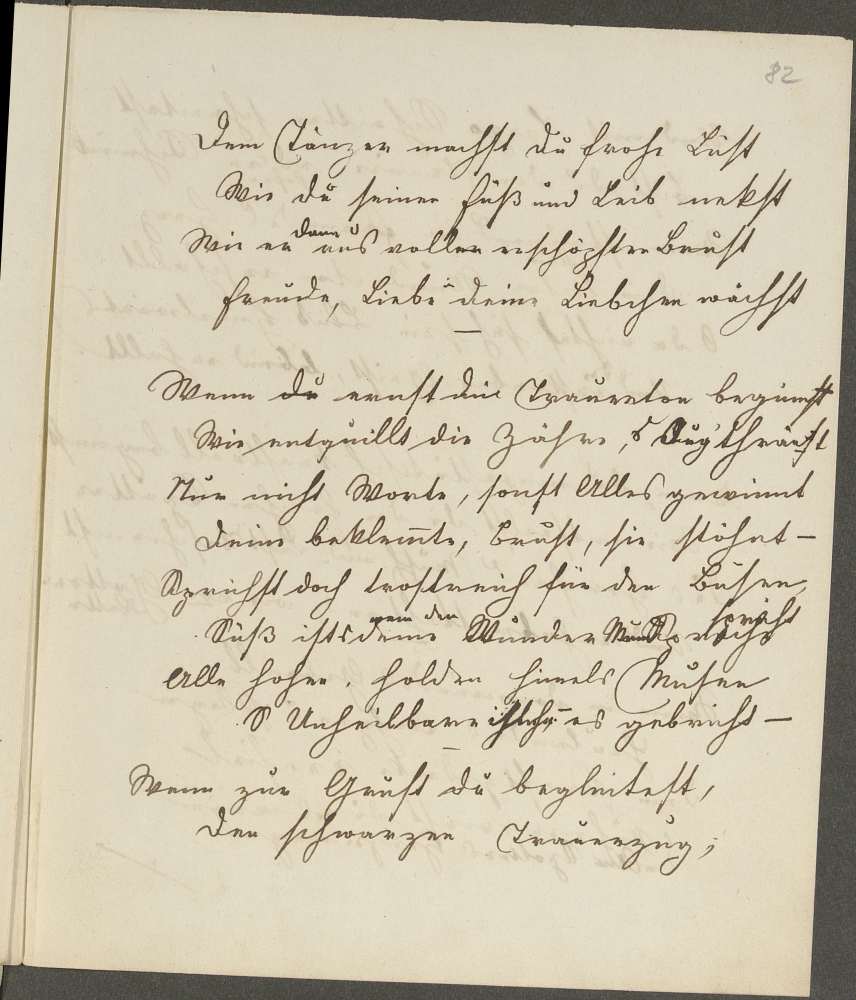 82
Dem Tänzer machst du frohe Lust
Wie du seinen Fuß und Leib nekst
Wie er dann aus voller erschöpfter Brust
Freude, Liebe deine Liebchen wächst
Wenn du ernst die Trauertöne beginnst
Wie entquillt die Zähre, 's Aug' thränt
Nur nicht Worte, sonst Alles gewinnt
Deine beklemte, Brust, sie stöhnt –
Sprichst doch trostreich für den Busen,
Süß ists wenn dein Wunder Mund spricht
Alle hohen, holden Himels Musen
S Unheilbare es gebricht –
Wenn zur Gruft du begleitest,
Den schwarzen Trauerzug,